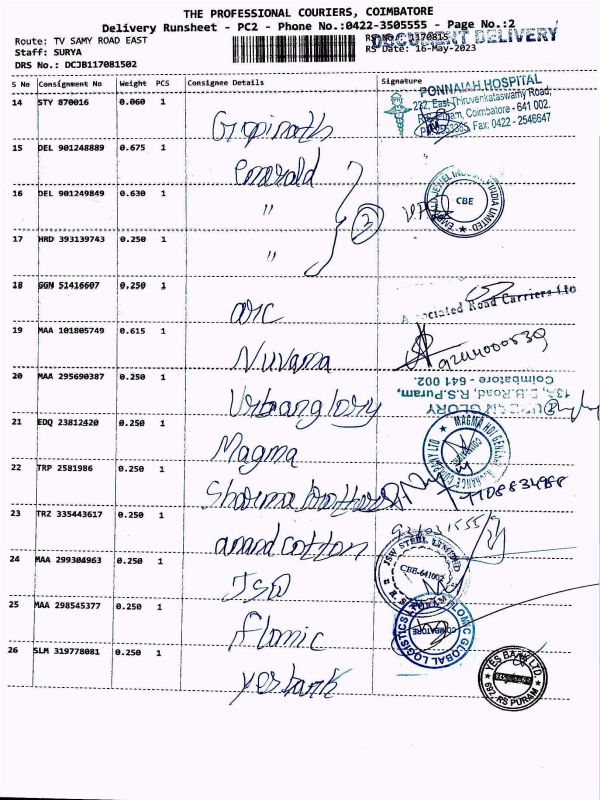 THE PROFESSIONAL COURIERS, COIMBATORE
Delivery Runsheet - PC2 - Phone No.:0422-3505555 - Page No.:2
Route: TV SAMY ROAD EAST
DOCUMENT DELIVERY
Staff: SURYA
RS Date: 16-May-2023
DRS No.: DCJB117081502
S No Consignment No Weight PCS Consignee Details Signature
14 STY 870016 0.060 1 Gopinath
PONNAIAH HOSPITAL
222, East Thiruvenkataswamy Road,
Coimbatore - 641 002.
Fax: 0422 - 2546647
15 DEL 901248889 0.675 1 Emerald
16 DEL 901249849 0.630 1 "
3
CBE
17 HRD 393139743 0.250 1 "
18 GGN 51416607 0.250 1 arc
Associated Road Carriers Ltd
19 MAA 101805749 0.615 1 Nuvama
20 MAA 295690387 0.250 1 Urbanglory
URBAN GLORY
R.S.Puram,
Coimbatore - 641 002.
21 EDQ 23812420 0.250 1 Magma
22 TRP 2581986 0.250 1 Sharma Brothers
23 TRZ 335443617 0.250 1 anand cotton
24 MAA 299304963 0.250 1 JSW
JSW STEEL LIMITED
CBE-641002
25 MAA 298545377 0.250 1 flomic
FLOMIC GLOBAL LOGISTICS
COIMBATORE
26 SLM 319778081 0.250 1 yes bank
YES BANK LTD.
692, RS PURAM